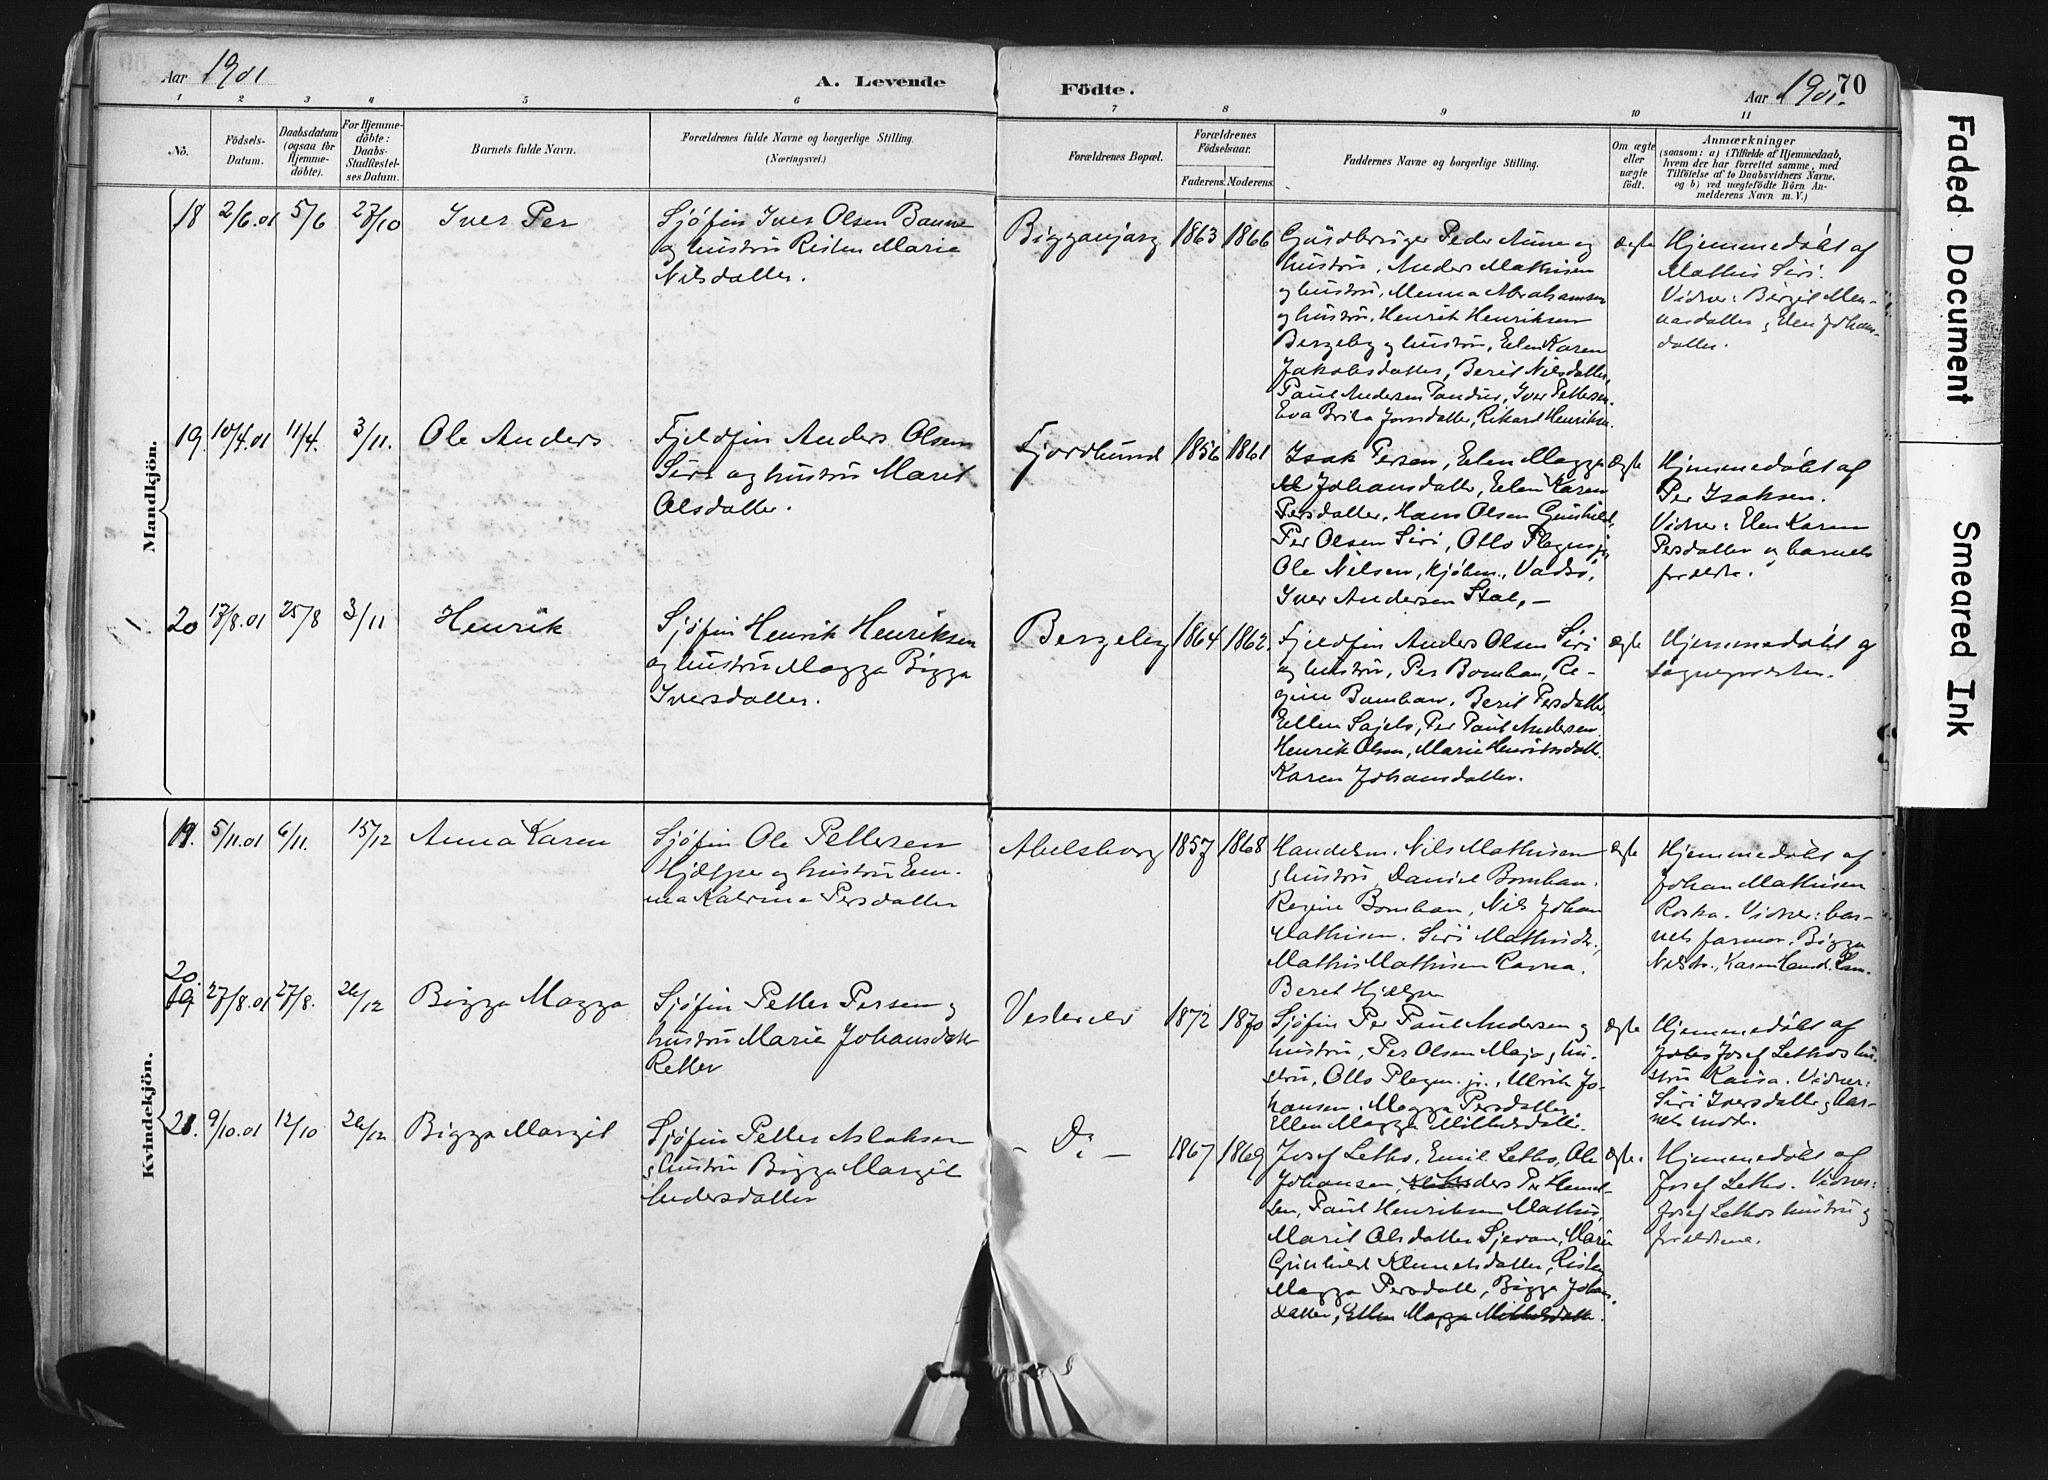 Aar 1901
A. Levende
Födte.
Aar 1901.
70
1 2 3 4 5 6 7 8 9 10 11
No.
Födsels-
Datum.
Daabsdatum
(ogsaa for
Hjemme-
döbte).
For Hjemme-
döbte:
Daabs-
Stadfæstel-
ses Datum.
Barnets fulde Navn.
Forældrenes fulde Navne og borgerlige Stilling.
(Næringsvei.)
Forældrenes Bopæl.
Forældrenes
Födselsaar.
Faderens. Moderens.
Faddernes Navne og borgerlige Stilling.
Om ægte
eller
uægte
födt.
Anmærkninger
(saasom: a) i Tilfælde af Hjemmedaab,
hvem der har forrettet samme, med
Tilföielse af to Daabsvidners Navne,
og b) ved uægtefödte Börn An-
melderens Navn m. V.)
Mandkjön.
18 2/6.01 5/6 27/10
Iver Per
Sjøfin Iver Olsen Banne
og hustru Risten Marie
Nilsdatter.
Bigganjarg
1863 1866
Gaardbruger Peder Aune og
hustru, Anders Mathisen
og hustru, Menna Abrahamsen
og hustru, Henrik Henriksen
Bergeby og hustru, Ellen Karen
Jakobsdatter, Berit Nilsdatter,
Paul Andersen Pandur, Iver Pettersen.
Eva Brita Jonsdatter, Rikard Henriksn.
ægte
Hjemmedøbt af
Mathis Siri.
Vidner: Birgit Men-
nasdatter, Elen Johans-
datter.
19. 10/4.01 11/4. 3/11.
Ole Anders
Fjeldfin Anders Olsen
Siri og hustru Marit
Olsdatter.
Fjordbund
1856 1861
Isak Persen, Elen Magga
Johansdatter, Elen Karen
Persdatter, Hans Olsen Gunhild,
Per Olsen Siri, Otto
Ole Nilsen, kjøbm., Vadsø,
Iver Andersen Stal,-
ægte
Hjemmedøbt af
Per Isaksen.
Vidner: Elen Karen
Persdatter og barnets
forældre.
20 17/8.01 25/8 3/11
Henrik
Sjøfin Henrik Henriksen
og hustru Magga Bigga
Iversdatter.
Bergeby
1864 1862.
Fjeldfin Anders Olsen Siri
og hustru, Per Bomban, Re-
gine Bomban, Berit Persdatter,
Ellen Sajets, Per Paul Andersen.
Henrik Olsen, Marie Henriksdatt.
Karen Johansdatter.
ægte
Hjemmedøbt af
sognepræsten.
Kvindekjön.
19. 5/11.01 6/11. 15/12
Anna Karen
Sjøfin Ole Pettersen
Hjelper og hustru Em-
ma Katrina Persdatter
Abelsborg
1857 1868
Handelsm. Nils Mathisen
og hustru Daniel Bomban.
Regine Bomban, Nils Johan
Mathisen. Siri Mathisdr.,
Mathis Mathisen Ravna.
Beret Hjelper
ægte
Hjemmedøbt af
Johan Mathisen
Roska. Vidner: bar-
nets farmor, Bigga
Nilsdr., Karen
20. 27/8.01 27/8. 26/12
Bigga Magga
Sjøfin Petter Persen og
hustru Marie Johansdatter
Reller
Vesterelv
1872 1870
Sjøfin Per Paul Andersen og
hustru, Per Olsen Majo og hu-
stru, Otto Jr., Ulrik Jo-
hansen. Magga Persdatter
Ellen Magga Mikkelsdatter.
ægte
Hjemmedøbt af
Josef Lethos hu-
stru Kaisa. Vidner:
Siri Iversdatter og bar-
nets moder.
21. 9/10.01 12/10 26/12
Bigga Margit
Sjøfin Petter Aslaksen
og hustru Bigga Margit
Andersdatter
- Do -
1867 1869
Josef Letho, Emil Letho, Ole
Johansen, Per Hemel-
sen, Paul Henriksen Mathis,
Marit Olsdatter Sjevan, Marie
Gunhild Klemetsdatter, Risten
Magga Persdatter, Bigga Johans-
datter, Ellen Magga Mikkelsdatter.
ægte.
Hjemmedøbt af
Josef Letho. Vidner:
Josef Lethos hustru og
forældrene.
Faded Document
Smeared Ink